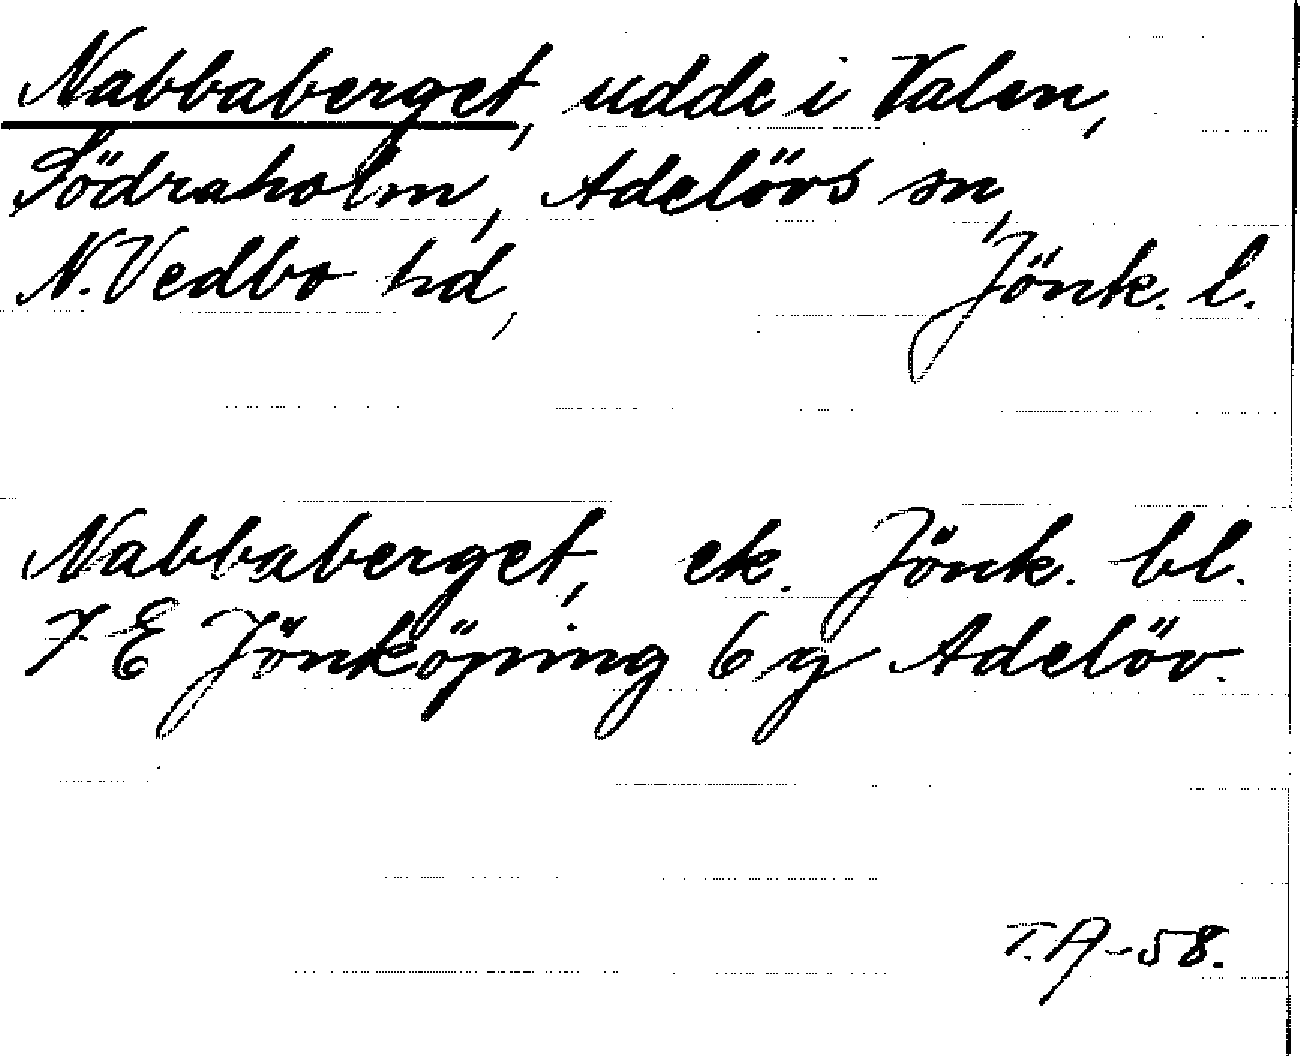 Nabbaberget, udde i Valen,
Södraholm, Adelövs sn,
N. Vedbo hd, Jönk. l.
Nabbaberget, ek. Jönk. bl.
7 E Jönköping 6 g Adelöv.
T. A-58.